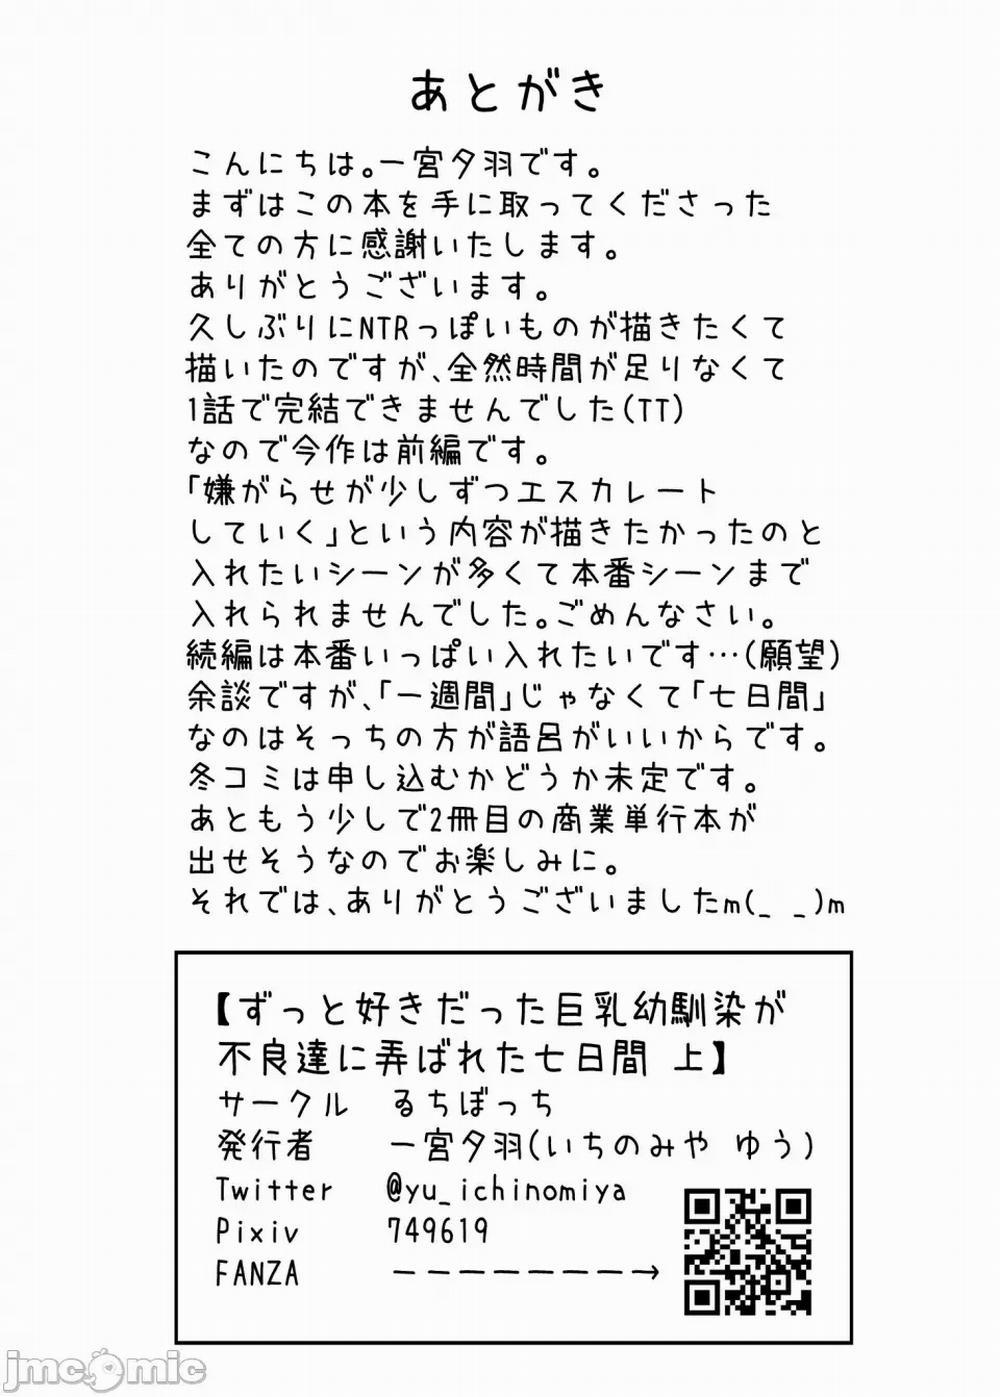 あとがき
こんにちは。一宮夕羽です。
まずはこの本を手に取ってくださった
全ての方に感謝いたします。
ありがとうございます。
久しぶりにNTRっぽいものが描きたくて
描いたのですが、全然時間が足りなくて
1話で完結できませんでした(TT)
なので今作は前編です。
「嫌がらせが少しずつエスカレート
していく」という内容が描きたかったのと
入れたいシーンが多くて本番シーンまで
入れられませんでした。ごめんなさい。
続編は本番いっぱい入れたいです…(願望)
余談ですが、「一週間」じゃなくて「七日間」
なのはそっちの方が語呂がいいからです。
冬コミは申し込むかどうか未定です。
あともう少しで2冊目の商業単行本が
出せそうなのでお楽しみに。
それでは、ありがとうございましたm(_ _)m
【ずっと好きだった巨乳幼馴染が
不良達に弄ばれた七日間 上】
サークル るちぼっち
発行者 一宮夕羽(いちのみや ゆう)
Twitter @yu_ichinomiya
Pixiv 749619
FANZA ーーーーーーーー→
jmcomic